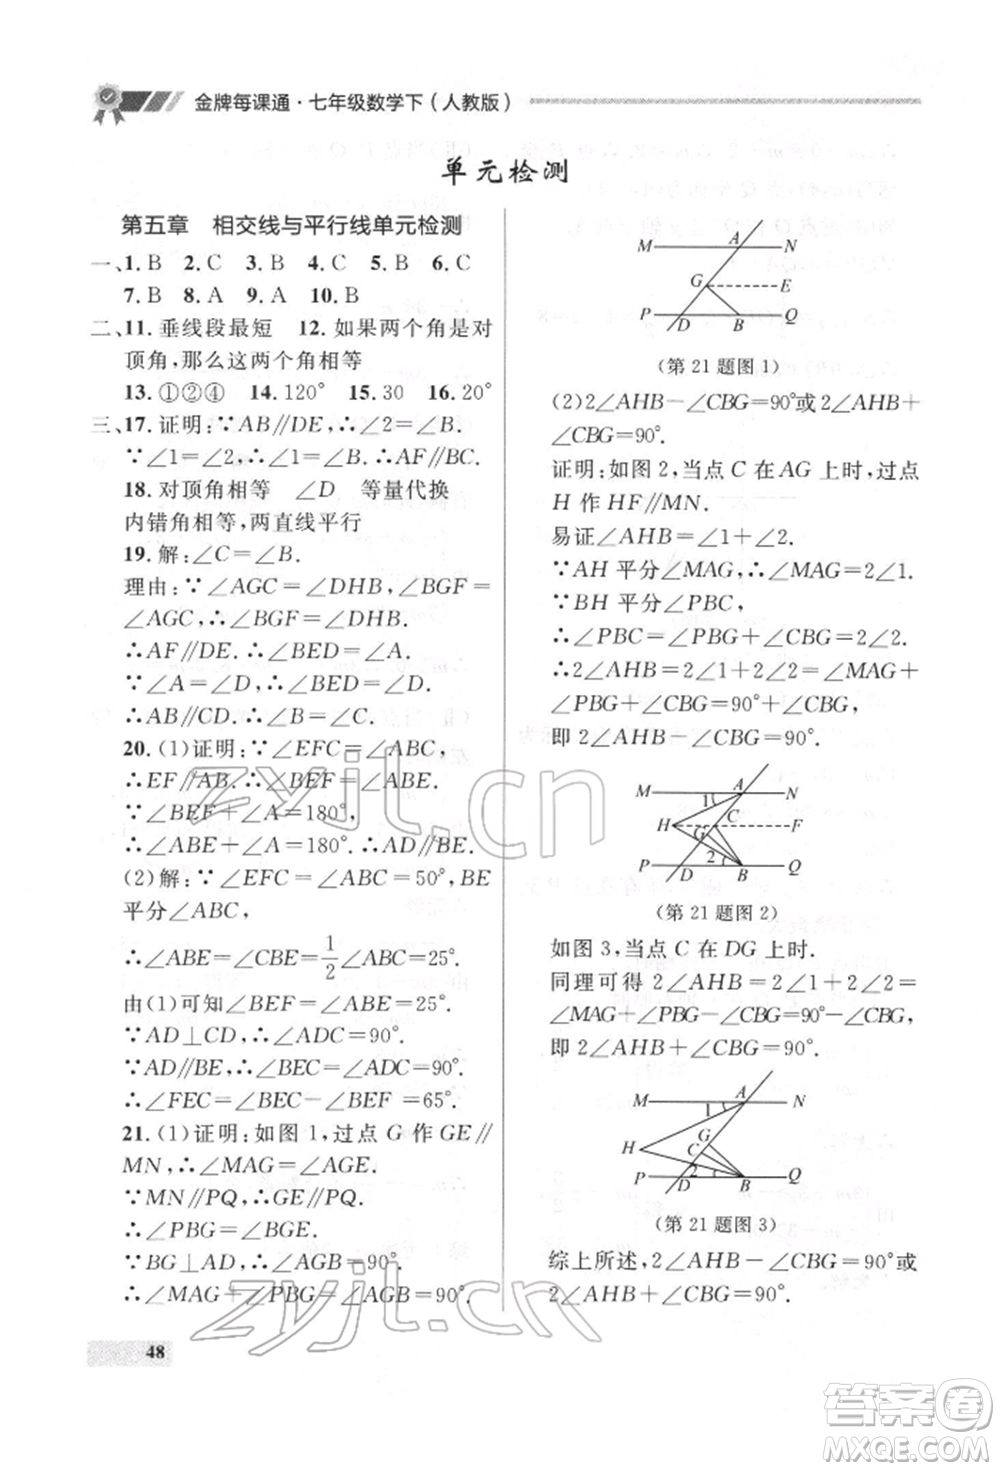 金牌每课通·七年级数学下(人教版)
单元检测
第五章 相交线与平行线单元检测
一、1. B 2. C 3. B 4. C 5. B 6. C
7. B 8. A 9. A 10. B
二、11. 垂线段最短 12. 如果两个角是对
顶角,那么这两个角相等
13. ①②④ 14. 120° 15. 30 16. 20°
三、17. 证明:∵AB∥DE,∴∠2=∠B.
∵∠1=∠2,∴∠1=∠B. ∴AF∥BC.
18. 对顶角相等 ∠D 等量代换
内错角相等,两直线平行
19. 解:∠C=∠B.
理由:∵∠AGC=∠DHB,∠BGF=
∠AGC,∴∠BGF=∠DHB.
∴AF∥DE. ∴∠BED=∠A.
∵∠A=∠D,∴∠BED=∠D.
∴AB∥CD. ∴∠B=∠C.
20. (1)证明:∵∠EFC=∠ABC,
∴EF∥AB. ∴∠BEF=∠ABE.
∵∠BEF+∠A=180°,
∴∠ABE+∠A=180°. ∴AD∥BE.
(2)解:∵∠EFC=∠ABC=50°,BE
平分∠ABC,
∴∠ABE=∠CBE=1/2∠ABC=25°.
由(1)可知∠BEF=∠ABE=25°.
∵AD⊥CD,∴∠ADC=90°.
∵AD∥BE,∴∠BEC=∠ADC=90°.
∴∠FEC=∠BEC-∠BEF=65°.
21. (1)证明:如图1,过点G作GE∥
MN,∴∠MAG=∠AGE.
∵MN∥PQ,∴GE∥PQ.
∴∠PBG=∠BGE.
∵BG⊥AD,∴∠AGB=90°.
∴∠MAG+∠PBG=∠AGB=90°.
48
M A N
G E
P D B Q
(第21题图1)
(2)2∠AHB-∠CBG=90°或2∠AHB+
∠CBG=90°.
证明:如图2,当点C在AG上时,过点
H作HF∥MN.
易证∠AHB=∠1+∠2.
∵AH平分∠MAG,∴∠MAG=2∠1.
∵BH平分∠PBC,
∴∠PBC=∠PBG+∠CBG=2∠2.
∴2∠AHB=2∠1+2∠2=∠MAG+
∠PBG+∠CBG=90°+∠CBG,
即2∠AHB-∠CBG=90°.
M 1 A N
H G C F
P D 2 B Q
(第21题图2)
如图3,当点C在DG上时.
同理可得2∠AHB=2∠1+2∠2=
∠MAG+∠PBG-∠CBG=90°-∠CBG,
即2∠AHB+∠CBG=90°.
M 1 A N
H G
C
P D 2 B Q
(第21题图3)
综上所述,2∠AHB-∠CBG=90°或
2∠AHB+∠CBG=90°.
zyjl.cn
zyjl.cn
答案圈
MXQE.COM